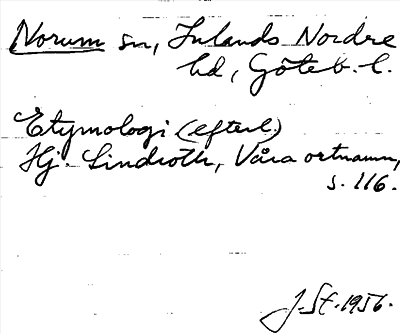 Norum sn, Inlands Nordre
hd, Göteb. l.
Etymologi (efterl.)
Hj. Lindroth, Våra ortnamn,
s. 116.
J. St. 1956.